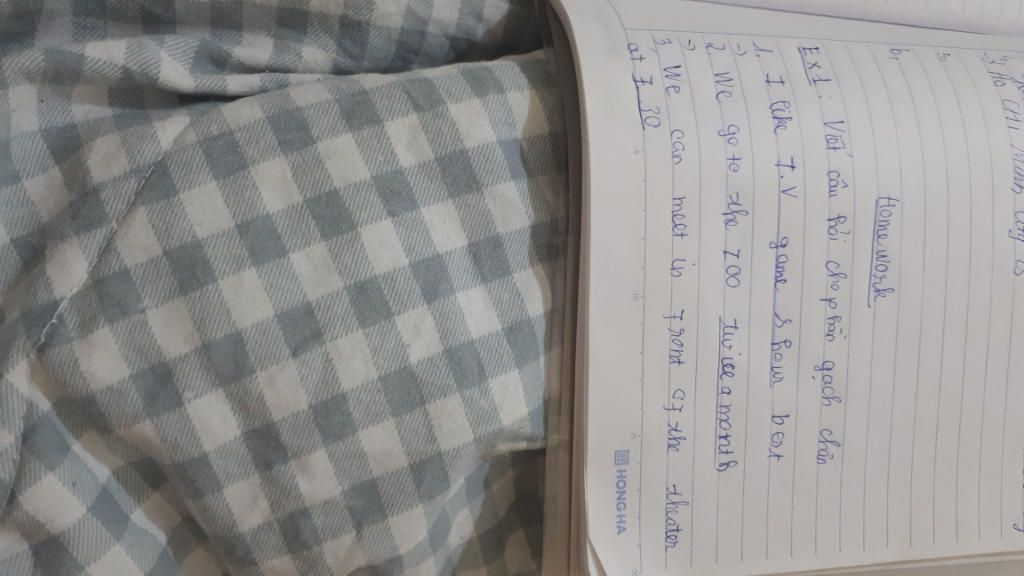 Homework
Ex1: Viết câu hỏi cho phần gạch chân
1, I like T.V game show best
→
2, We go to the zoo twice a month
→
3, We can meet in front of the theater
at 7.30
5,
6,
HONG HA